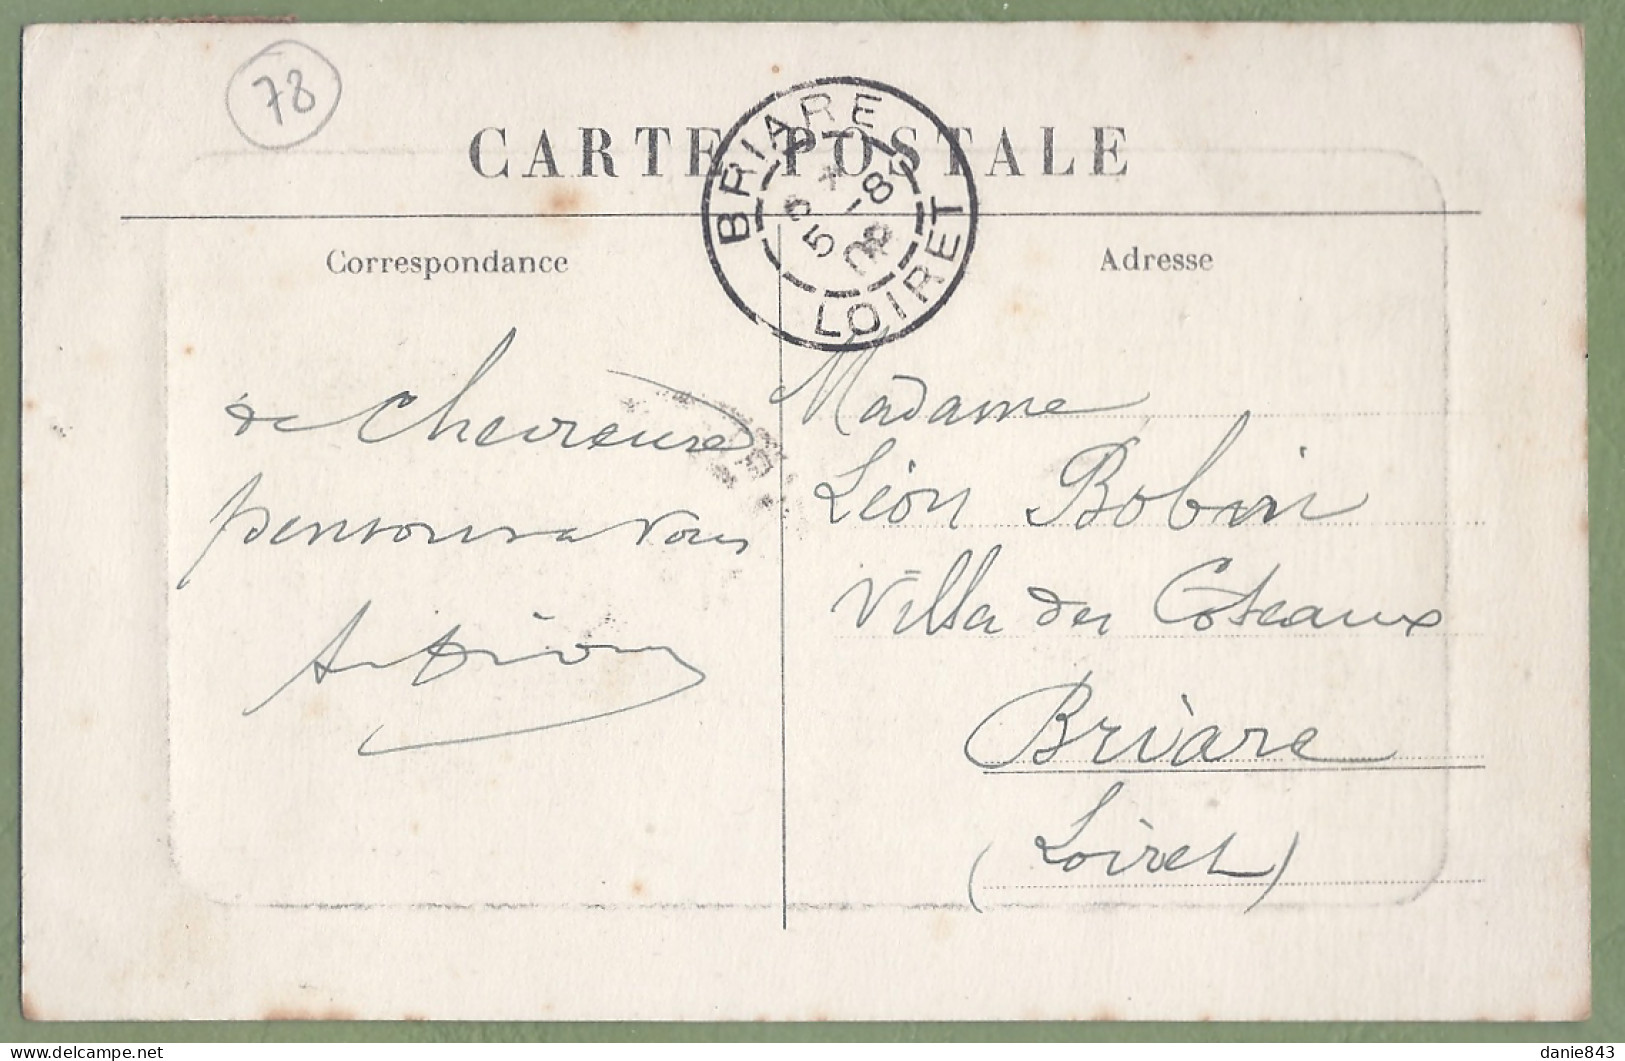 78
CARTE POSTALE
BRIARE
5 -8
08
LOIRET
Correspondance
Adresse
de Chevreuse
pensons à vous
Madame
Léon Bobin
Villa des Coteaux
Briare
(Loiret)
danie843